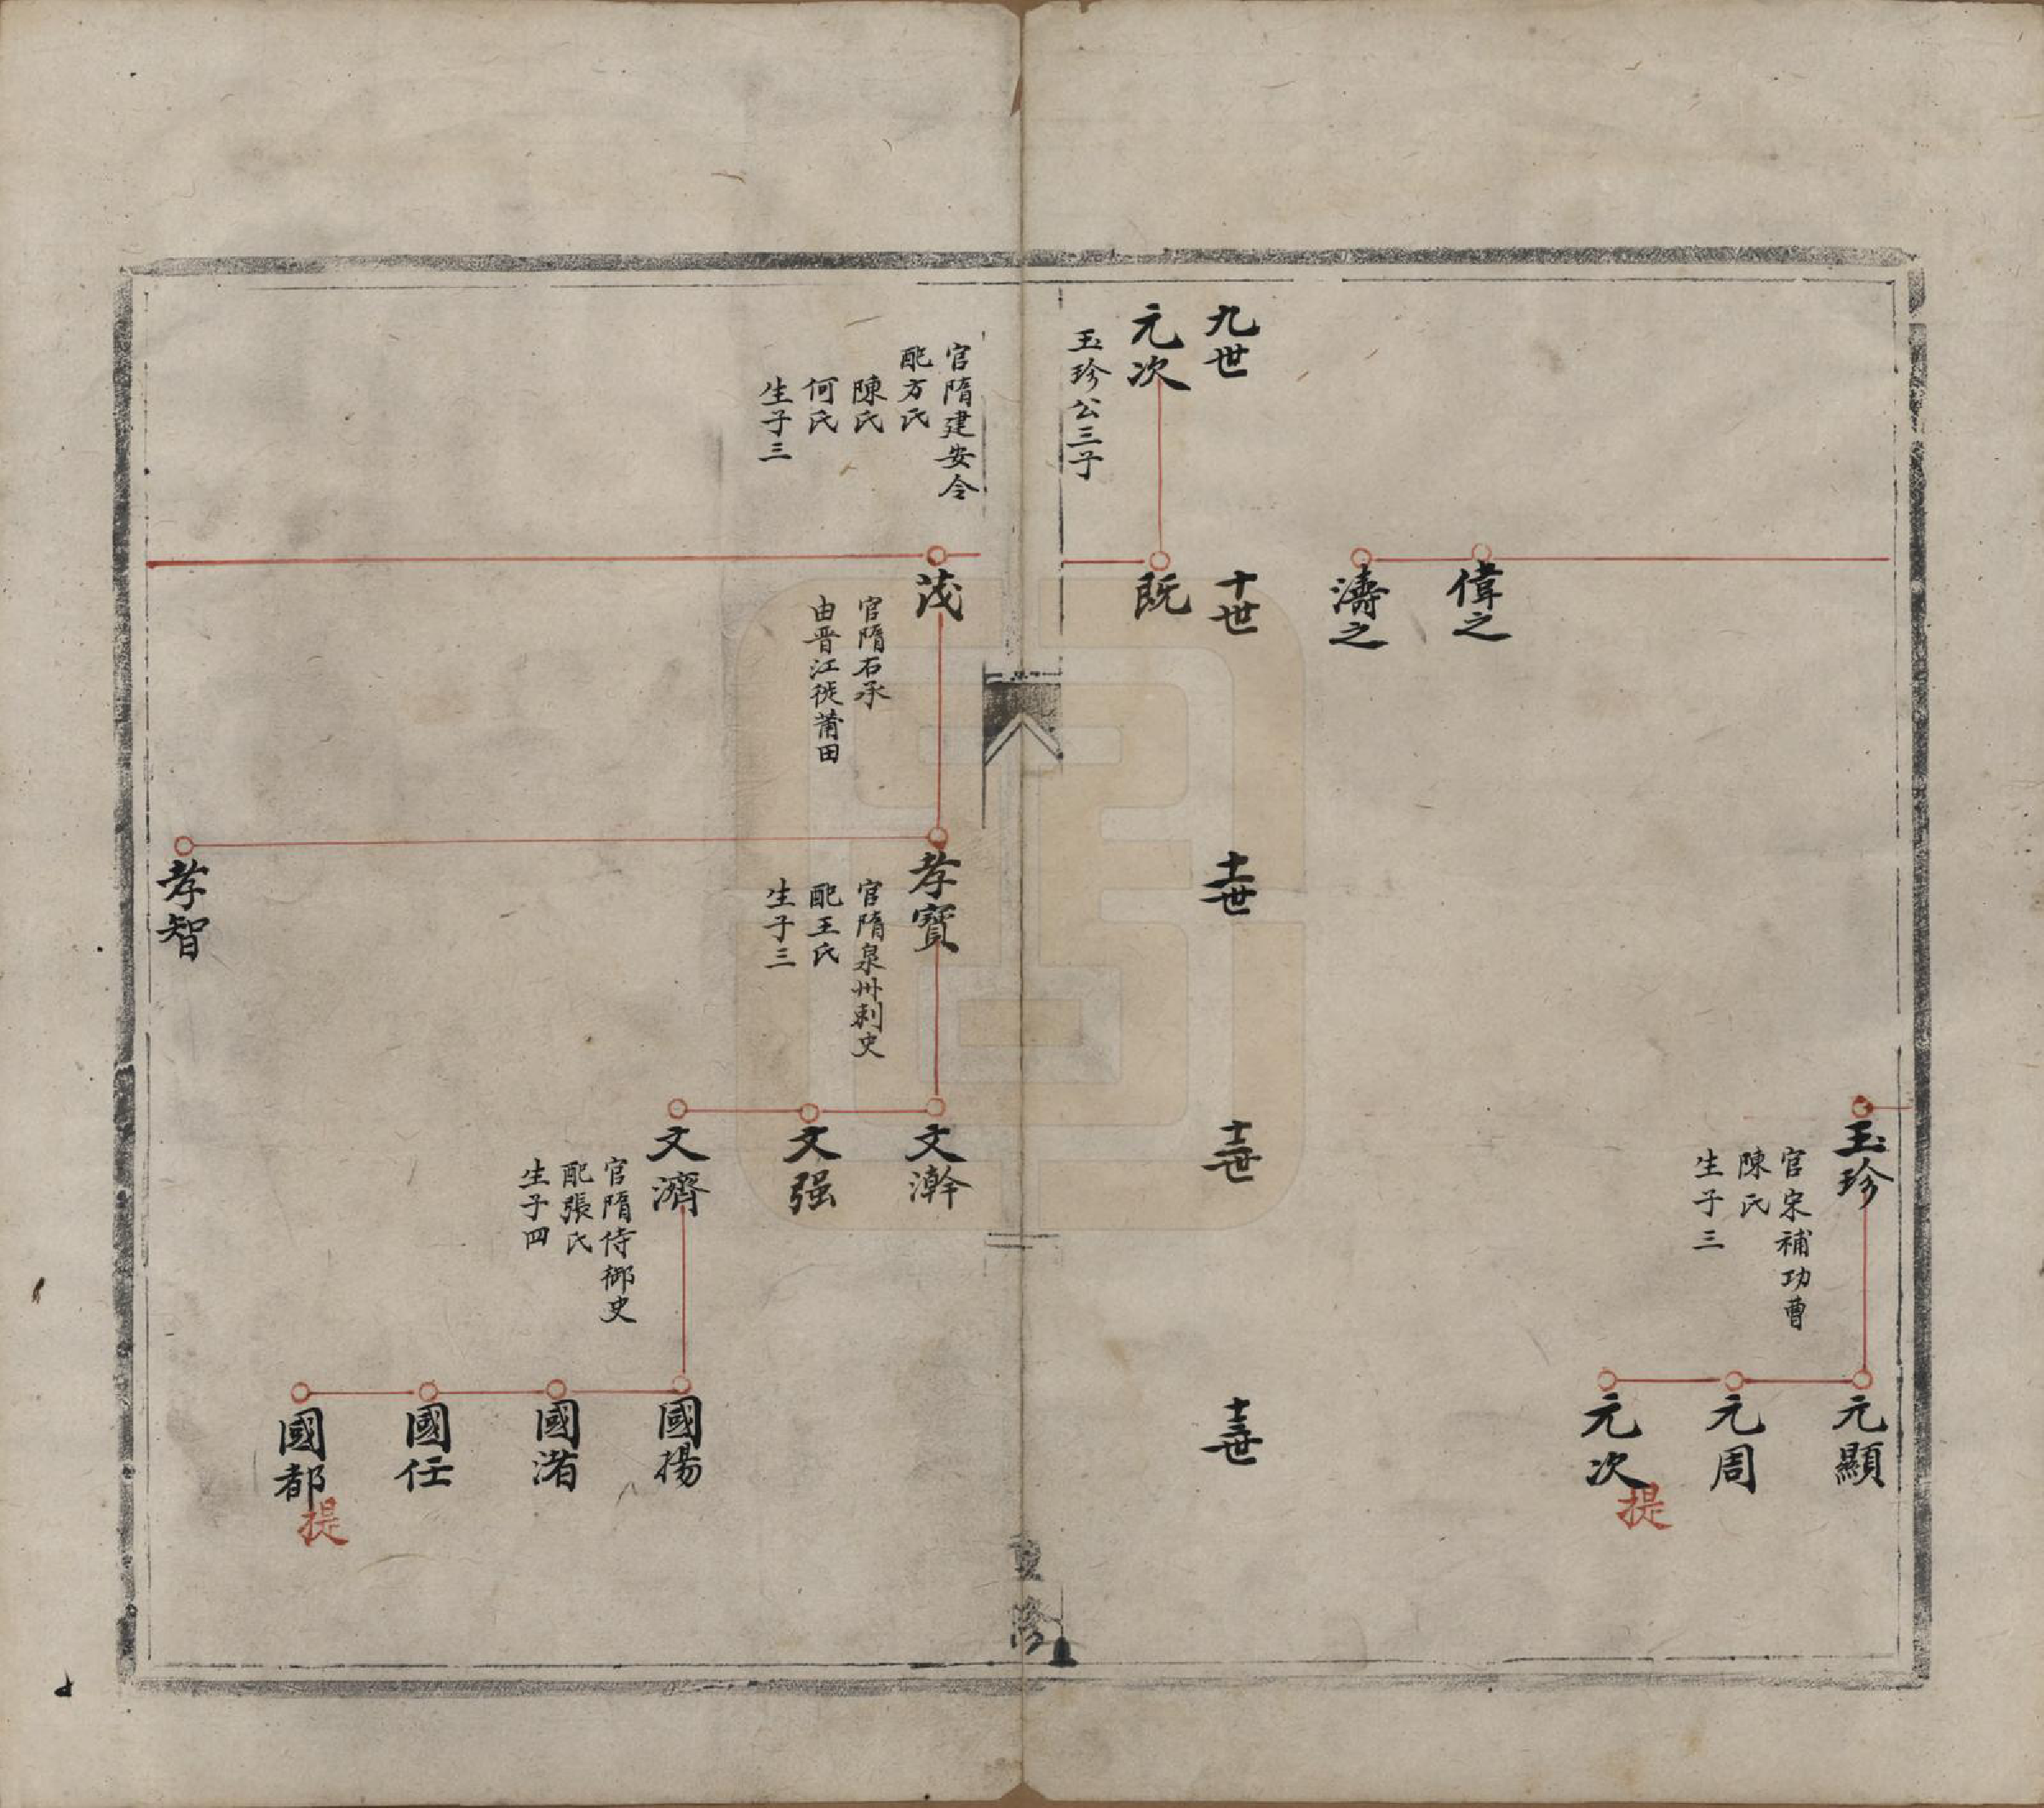 偉之
濤之
玉珍
官宋補功曹
陳氏
生子三
元顯
元周
元次
提
九世
十世
十一世
十二世
十三世
元次
玉珍公三子
既
官隋建安令
配方氏
陳氏
何氏
生子三
茂
官隋右承
由晋江徙莆田
孝寳
官隋泉州刺史
配王氏
生子三
孝智
文瀚
文强
文濟
官隋侍御史
配張氏
生子四
國揚
國渚
國任
國都
提